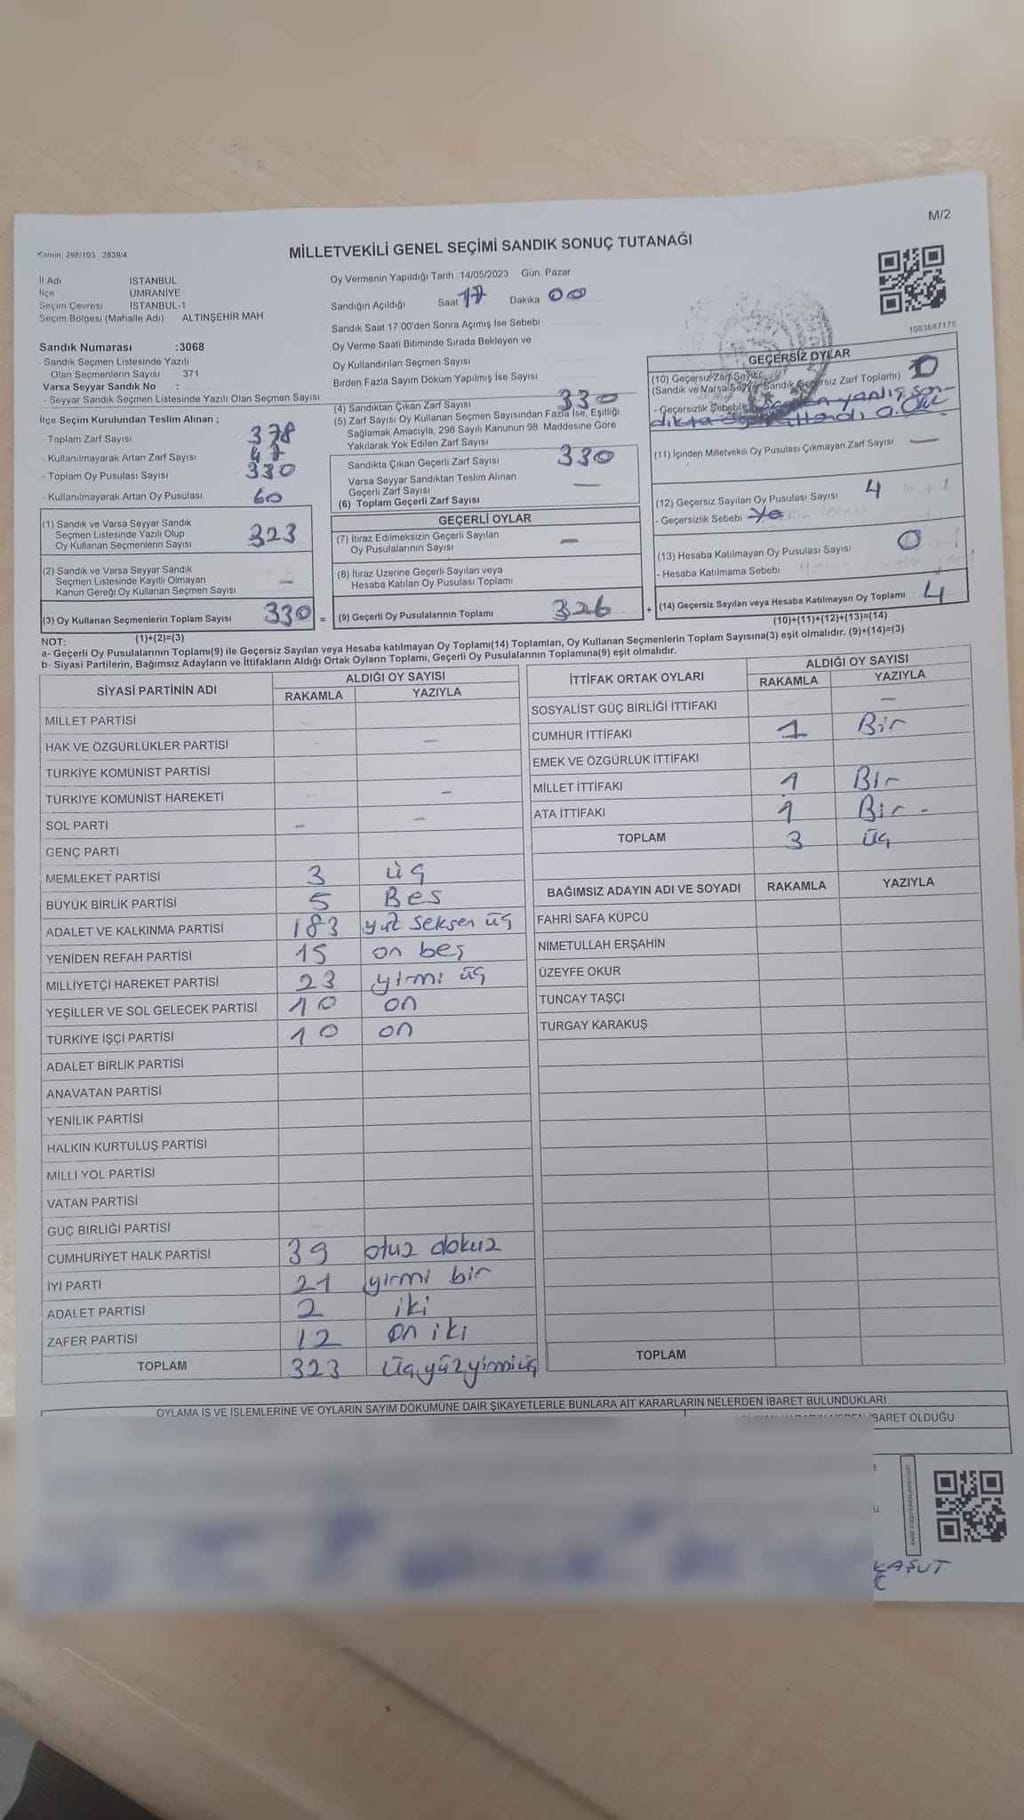 M/2
Kanun: 298/105 2839/4
MİLLETVEKİLİ GENEL SEÇİMİ SANDIK SONUÇ TUTANAĞI
İl Adı İSTANBUL
İlçe ÜMRANİYE
Seçim Çevresi İSTANBUL-1
Seçim Bölgesi (Mahalle Adı) ALTINŞEHİR MAH
Sandık Numarası :3068
- Sandık Seçmen Listesinde Yazılı
Olan Seçmenlerin Sayısı 371
Varsa Seyyar Sandık No :
- Seyyar Sandık Seçmen Listesinde Yazılı Olan Seçmen Sayısı
İlçe Seçim Kurulundan Teslim Alınan ;
- Toplam Zarf Sayısı 378
- Kullanılmayarak Artan Zarf Sayısı 47
- Toplam Oy Pusulası Sayısı 330
- Kullanılmayarak Artan Oy Pusulası 60
(1) Sandık ve Varsa Seyyar Sandık
Seçmen Listesinde Yazılı Olup
Oy Kullanan Seçmenlerin Sayısı 323
(2) Sandık ve Varsa Seyyar Sandık
Seçmen Listesinde Kayıtlı Olmayan
Kanun Gereği Oy Kullanan Seçmen Sayısı –
(3) Oy Kullanan Seçmenlerin Toplam Sayısı 330 =
(1)+(2)=(3)
Oy Vermenin Yapıldığı Tarih :14/05/2023 Gün: Pazar
Sandığın Açıldığı Saat 17 Dakika 00
Sandık Saat 17:00'den Sonra Açımış İse Sebebi
Oy Verme Saati Bitiminde Sırada Bekleyen ve
Oy Kullandırılan Seçmen Sayısı
Birden Fazla Sayım Döküm Yapılmış İse Sayısı
(4) Sandıktan Çıkan Zarf Sayısı 330
(5) Zarf Sayısı Oy Kullanan Seçmen Sayısından Fazla İse, Eşitliği
Sağlamak Amacıyla, 298 Sayılı Kanunun 98. Maddesine Göre
Yakılarak Yok Edilen Zarf Sayısı
Sandıkta Çıkan Geçerli Zarf Sayısı 330
Varsa Seyyar Sandıktan Teslim Alınan
Geçerli Zarf Sayısı –
(6) Toplam Geçerli Zarf Sayısı
GEÇERLİ OYLAR
(7) İtiraz Edilmeksizin Geçerli Sayılan
Oy Pusulalarının Sayısı –
(8) İtiraz Üzerine Geçerli Sayılan veya
Hesaba Katılan Oy Pusulası Toplamı
(9) Geçerli Oy Pusulalarının Toplamı 326 +
1083687178
GEÇERSİZ OYLAR
(10) Geçersiz Zarf Sayısı 0
(Sandık ve Varsa Seyyar Sandık Geçersiz Zarf Toplamı)
- Geçersizlik Sebebi yanlış san-
dıkta
(11) İçinden Milletvekili Oy Pusulası Çıkmayan Zarf Sayısı –
(12) Geçersiz Sayılan Oy Pusulası Sayısı 4
- Geçersizlik Sebebi
(13) Hesaba Katılmayan Oy Pusulası Sayısı 0
- Hesaba Katılmama Sebebi
(14) Geçersiz Sayılan veya Hesaba Katılmayan Oy Toplamı 4
(10)+(11)+(12)+(13)=(14)
NOT:
a- Geçerli Oy Pusulalarının Toplamı(9) ile Geçersiz Sayılan veya Hesaba katılmayan Oy Toplamı(14) Toplamları, Oy Kullanan Seçmenlerin Toplam Sayısına(3) eşit olmalıdır. (9)+(14)=(3)
b- Siyasi Partilerin, Bağımsız Adayların ve İttifakların Aldığı Ortak Oyların Toplamı, Geçerli Oy Pusulalarının Toplamına(9) eşit olmalıdır.
SİYASİ PARTİNİN ADI ALDIĞI OY SAYISI
RAKAMLA YAZIYLA
MİLLET PARTİSİ –
HAK VE ÖZGÜRLÜKLER PARTİSİ – –
TÜRKİYE KOMÜNİST PARTİSİ
TÜRKİYE KOMÜNİST HAREKETİ – –
SOL PARTİ – –
GENÇ PARTİ
MEMLEKET PARTİSİ 3 üç
BÜYÜK BİRLİK PARTİSİ 5 Bes
ADALET VE KALKINMA PARTİSİ 183 yüz seksen üç
YENİDEN REFAH PARTİSİ 15 on beş
MİLLİYETÇİ HAREKET PARTİSİ 23 yirmi üç
YEŞİLLER VE SOL GELECEK PARTİSİ 10 on
TÜRKİYE İŞÇİ PARTİSİ 10 on
ADALET BİRLİK PARTİSİ
ANAVATAN PARTİSİ
YENİLİK PARTİSİ
HALKIN KURTULUŞ PARTİSİ
MİLLİ YOL PARTİSİ
VATAN PARTİSİ
GÜÇ BİRLİĞİ PARTİSİ
CUMHURİYET HALK PARTİSİ 39 otuz dokuz
İYİ PARTİ 21 yirmi bir
ADALET PARTİSİ 2 iki
ZAFER PARTİSİ 12 on iki
TOPLAM 323 üçyüzyirmiüç
İTTİFAK ORTAK OYLARI ALDIĞI OY SAYISI
RAKAMLA YAZIYLA
SOSYALİST GÜÇ BİRLİĞİ İTTİFAKI –
CUMHUR İTTİFAKI 1 Bir
EMEK VE ÖZGÜRLÜK İTTİFAKI
MİLLET İTTİFAKI 1 Bir
ATA İTTİFAKI 1 Bir -
TOPLAM 3 üç
BAĞIMSIZ ADAYIN ADI VE SOYADI RAKAMLA YAZIYLA
FAHRİ SAFA KÜPCÜ
NİMETULLAH ERŞAHİN
ÜZEYFE OKUR
TUNCAY TAŞÇI
TURGAY KARAKUŞ
TOPLAM
OYLAMA İŞ VE İŞLEMLERİNE VE OYLARIN SAYIM DÖKÜMÜNE DAİR ŞİKAYETLERLE BUNLARA AİT KARARLARIN NELERDEN İBARET BULUNDUKLARI
İBARET OLDUĞU